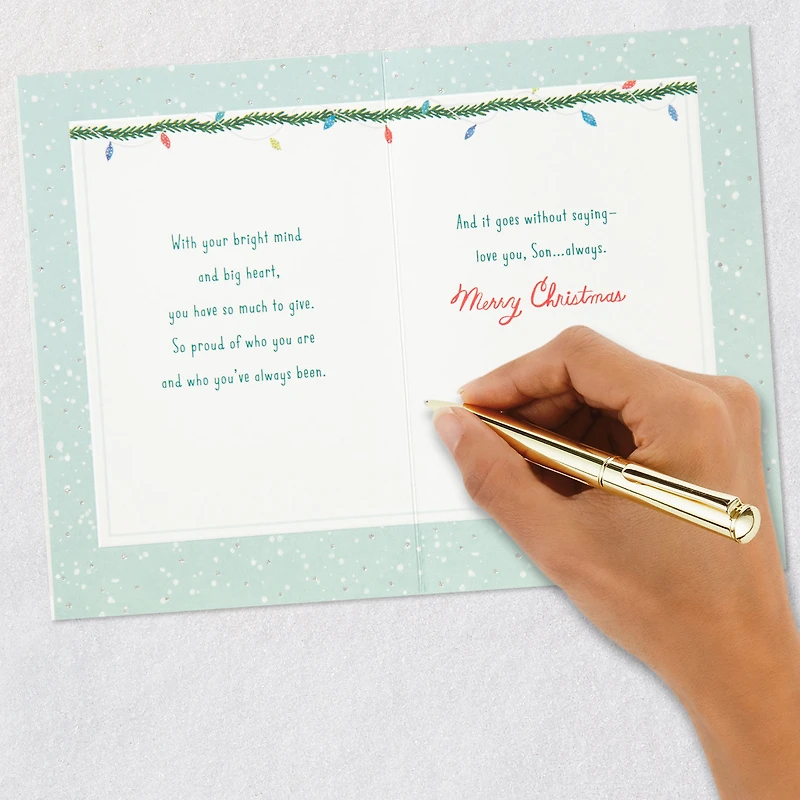 With your bright mind
and big heart,
you have so much to give.
So proud of who you are
and who you've always been.
And it goes without saying–
love you, Son...always.
Merry Christmas